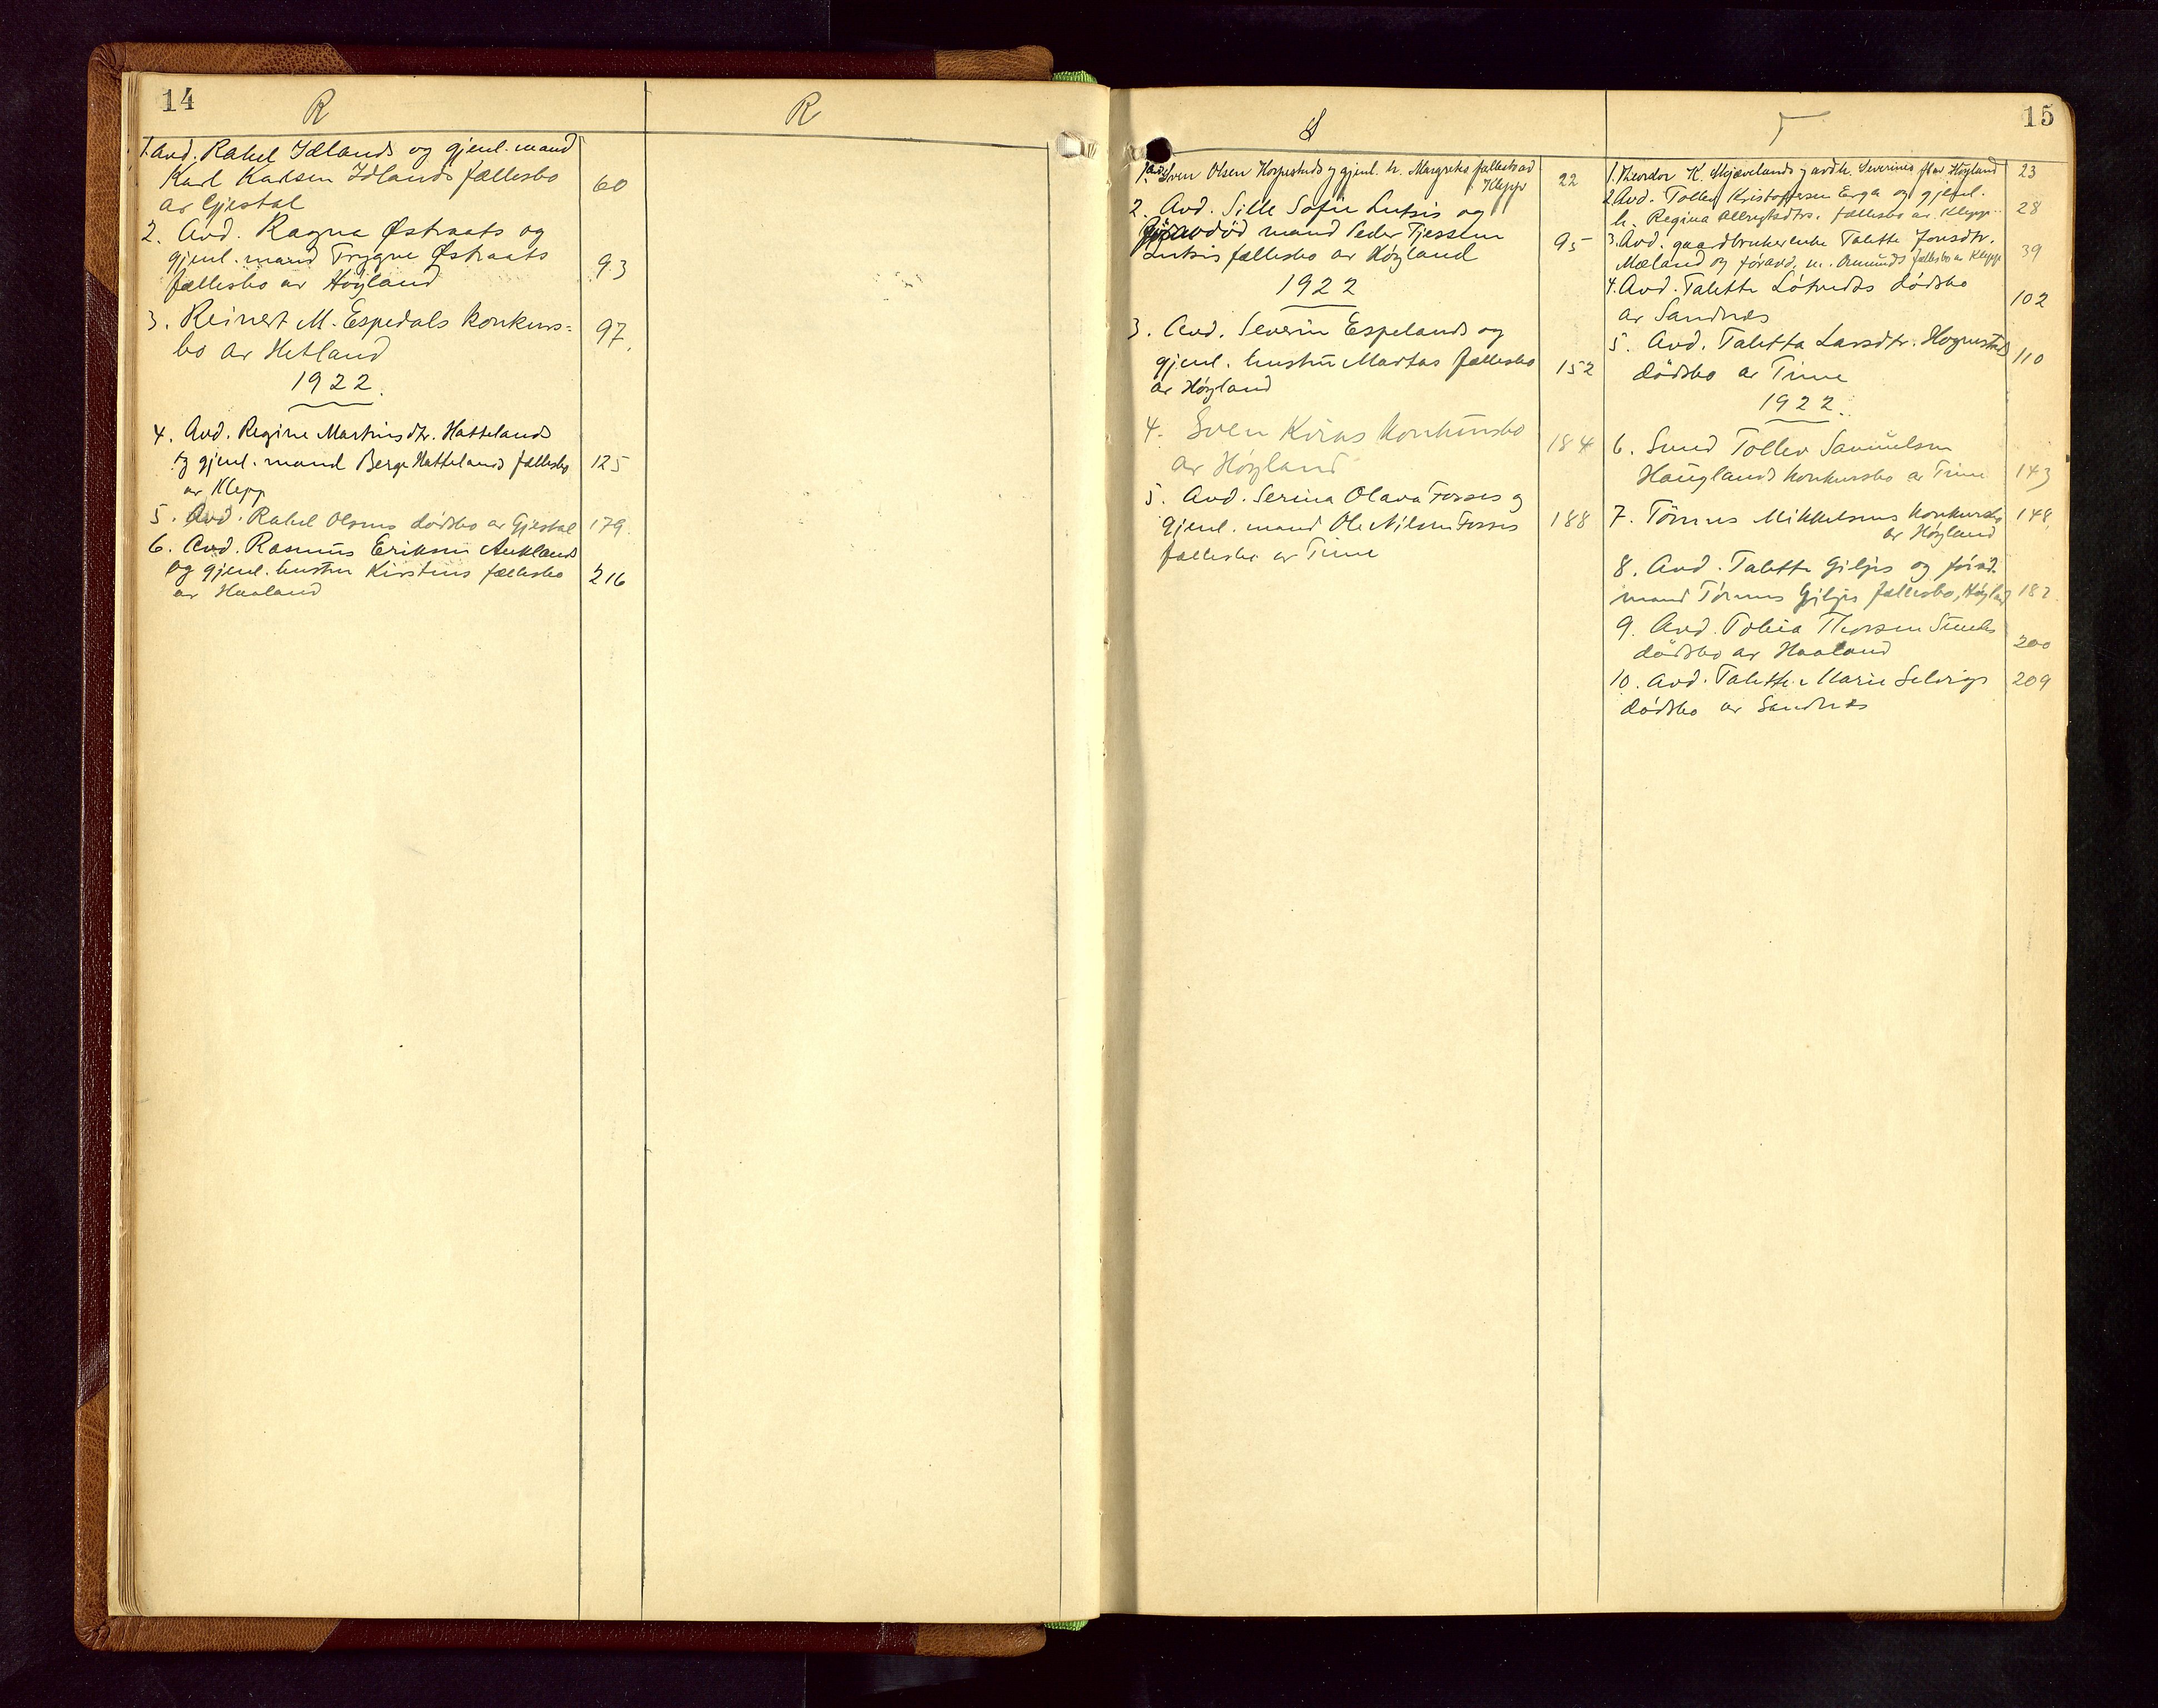 14
R
1. Avd. Rakel Idlands og gjenl. mand
Karl Karlsen Idlands fællesbo
av Gjestal
60
2. Avd. Ragna Østraats og
gjenl. mand Trygve Østraats
fællesbo av Høyland
93
3. Reinert M. Espedals konkurs-
bo av Hetland
97.
1922.
4. Avd. Regine Martinsdtr. Hattelands
og gjenl. mand Berge Hattelands fællesbo
av Klepp
125
5. Avd. Rakel Olsens dødsbo av Gjestal 179
6. Avd. Rasmus Eriksen Auklands
og gjenl. hustru Kirstines fællesbo
av Haaland
216
R
S
1. Avd. Sven Olsen Horpestads og gjenl. h. Margretes fællesbo av
Klepp
22
2. Avd. Sille Sofie Lutsis og
foravdød mand Peder Tjessem
Lutsis fællesbo av Høyland
95
1922
3. Avd. Severin Espelands og
gjenl. hustru Martas fællesbo
av Høyland
152
4. Sven Kvias konkursbo
av Høyland
184
5. Avd. Serina Olava Fosses og
gjenl. mand Ole Nilsen Fosses
fællesbo av Time
188
15
T
1. Theodor K. Mjævelands og avd. h. Severines av Høyland 23
2. Avd. Tollev Kristoffersen Erga og gjenl.
h. Regina fællesbo av Klepp
28
3. Avd. gaardbrukerenke Talette Jonsdtr.
Mæland og foravd. m. Omunds fællesbo av Klepp
39
4. Avd. Talette dødsbo
av Sandnes
102
5. Avd. Taletta Larsdtr. Hognestads
dødsbo av Time
110
1922.
6. Smed Tollev Samuelsen
Hauglands konkursbo av Time
143
7. Tönnes Mikkelsens konkursbo
av Høyland
148
8. Avd. Talette Giljes og foravd.
mand Tönnes Giljes fællesbo, Høyland
182
9. Avd. Tobia Thorsen
dødsbo av Haaland
200
10. Avd. Talette Marie Selvigs
dødsbo av Sandnes
209